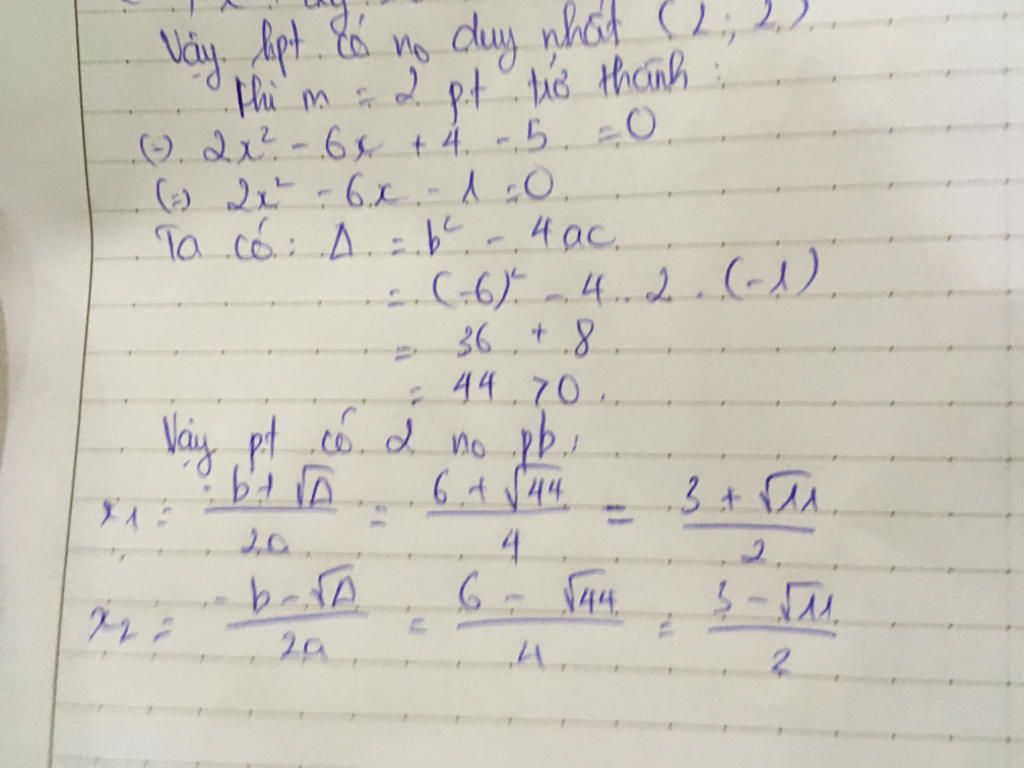 Vậy hpt có no duy nhất (2; 2)
Khi m = 2 pt trở thành:
(=) 2x² - 6x + 4 - 5 = 0
(=) 2x² - 6x - 1 = 0
Ta có: Δ = b² - 4ac
= (-6)² - 4 . 2 . (-1)
= 36 + 8
= 44 > 0.
Vậy pt có 2 no pb:
x₁ = (-b + √Δ)/2a = (6 + √44)/4 = (3 + √11)/2
x₂ = (-b - √Δ)/2a = (6 - √44)/4 = (3 - √11)/2